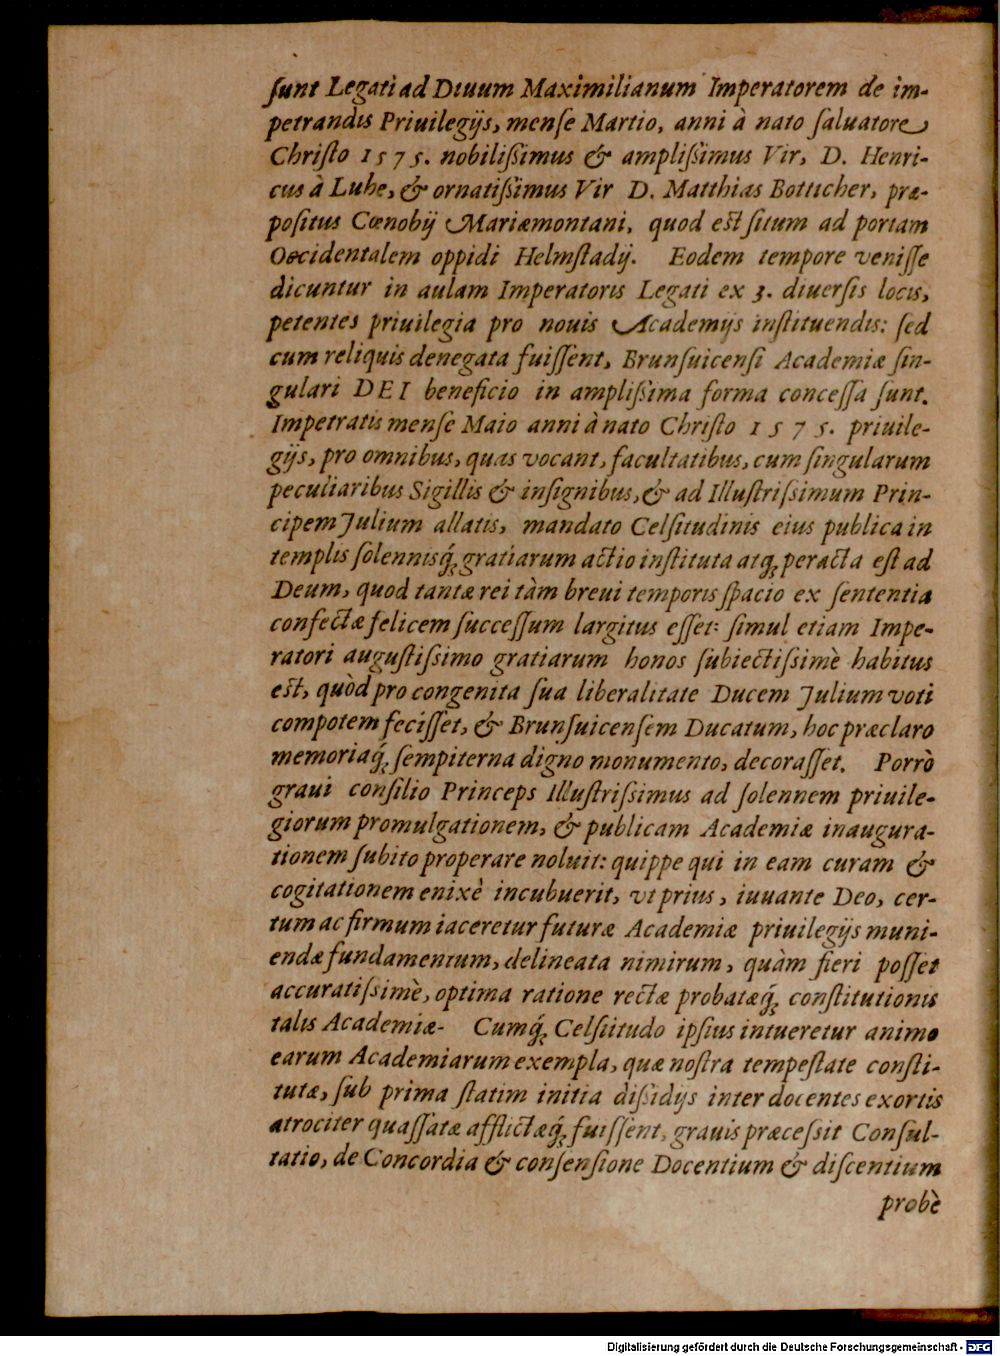 ſunt Legati ad Diuum Maximilianum Imperatorem de im-
petrandis Priuilegijs, menſe Martio, anni à nato ſaluatore
Chriſto 1575. nobiliſsimus & ampliſsimus Vir, D. Henri-
cus à Luhe, & ornatiſsimus Vir D. Matthias Botticher, præ-
poſitus Cœnobij Mariæmontani, quod eſt ſitum ad portam
Occidentalem oppidi Helmſtadij. Eodem tempore veniſſe
dicuntur in aulam Imperatoris Legati ex 3. diuerſis locis,
petentes priuilegia pro nouis Academijs inſtituendis: ſed
cum reliquis denegata fuiſſent, Brunſuicenſi Academiæ ſin-
gulari DEI beneficio in ampliſsima forma conceſſa ſunt.
Impetratis menſe Maio anni à nato Chriſto 1575. priuile-
gijs, pro omnibus, quas vocant, facultatibus, cum ſingularum
peculiaribus Sigillis & inſignibus, & ad Illuſtriſsimum Prin-
cipem Julium allatis, mandato Celſitudinis eius publica in
templis ſolennisq́; gratiarum actio inſtituta atq; peracta eſt ad
Deum, quod tantæ rei tàm breui temporis ſpacio ex ſententia
confectæ felicem ſucceſſum largitus eſſet: ſimul etiam Impe-
ratori auguſtiſsimo gratiarum honos ſubiectiſsimè habitus
eſt, quòd pro congenita ſua liberalitate Ducem Julium voti
compotem feciſſet, & Brunſuicenſem Ducatum, hoc præclaro
memoriaq́; ſempiterna digno monumento, decoraſſet. Porrò
graui conſilio Princeps Illuſtriſsimus ad ſolennem priuile-
giorum promulgationem, & publicam Academiæ inaugura-
tionem ſubito properare noluit: quippe qui in eam curam &
cogitationem enixè incubuerit, vt prius, iuuante Deo, cer-
tum ac firmum iaceretur futuræ Academiæ priuilegijs muni-
endæ fundamentum, delineata nimirum, quàm fieri poſſet
accuratiſsimè, optima ratione rectæ probatæq́; conſtitutionis
talis Academiæ. Cumq́; Celſitudo ipſius intueretur animo
earum Academiarum exempla, quæ noſtra tempeſtate conſti-
tutæ, ſub prima ſtatim initia diſsidijs inter docentes exortis
atrociter quaſſatæ afflictæq́; fuiſſent, grauis præceſsit Conſul-
tatio, de Concordia & conſenſione Docentium & diſcentium
probè
Digitalisierung gefördert durch die Deutsche Forschungsgemeinschaft - DFG